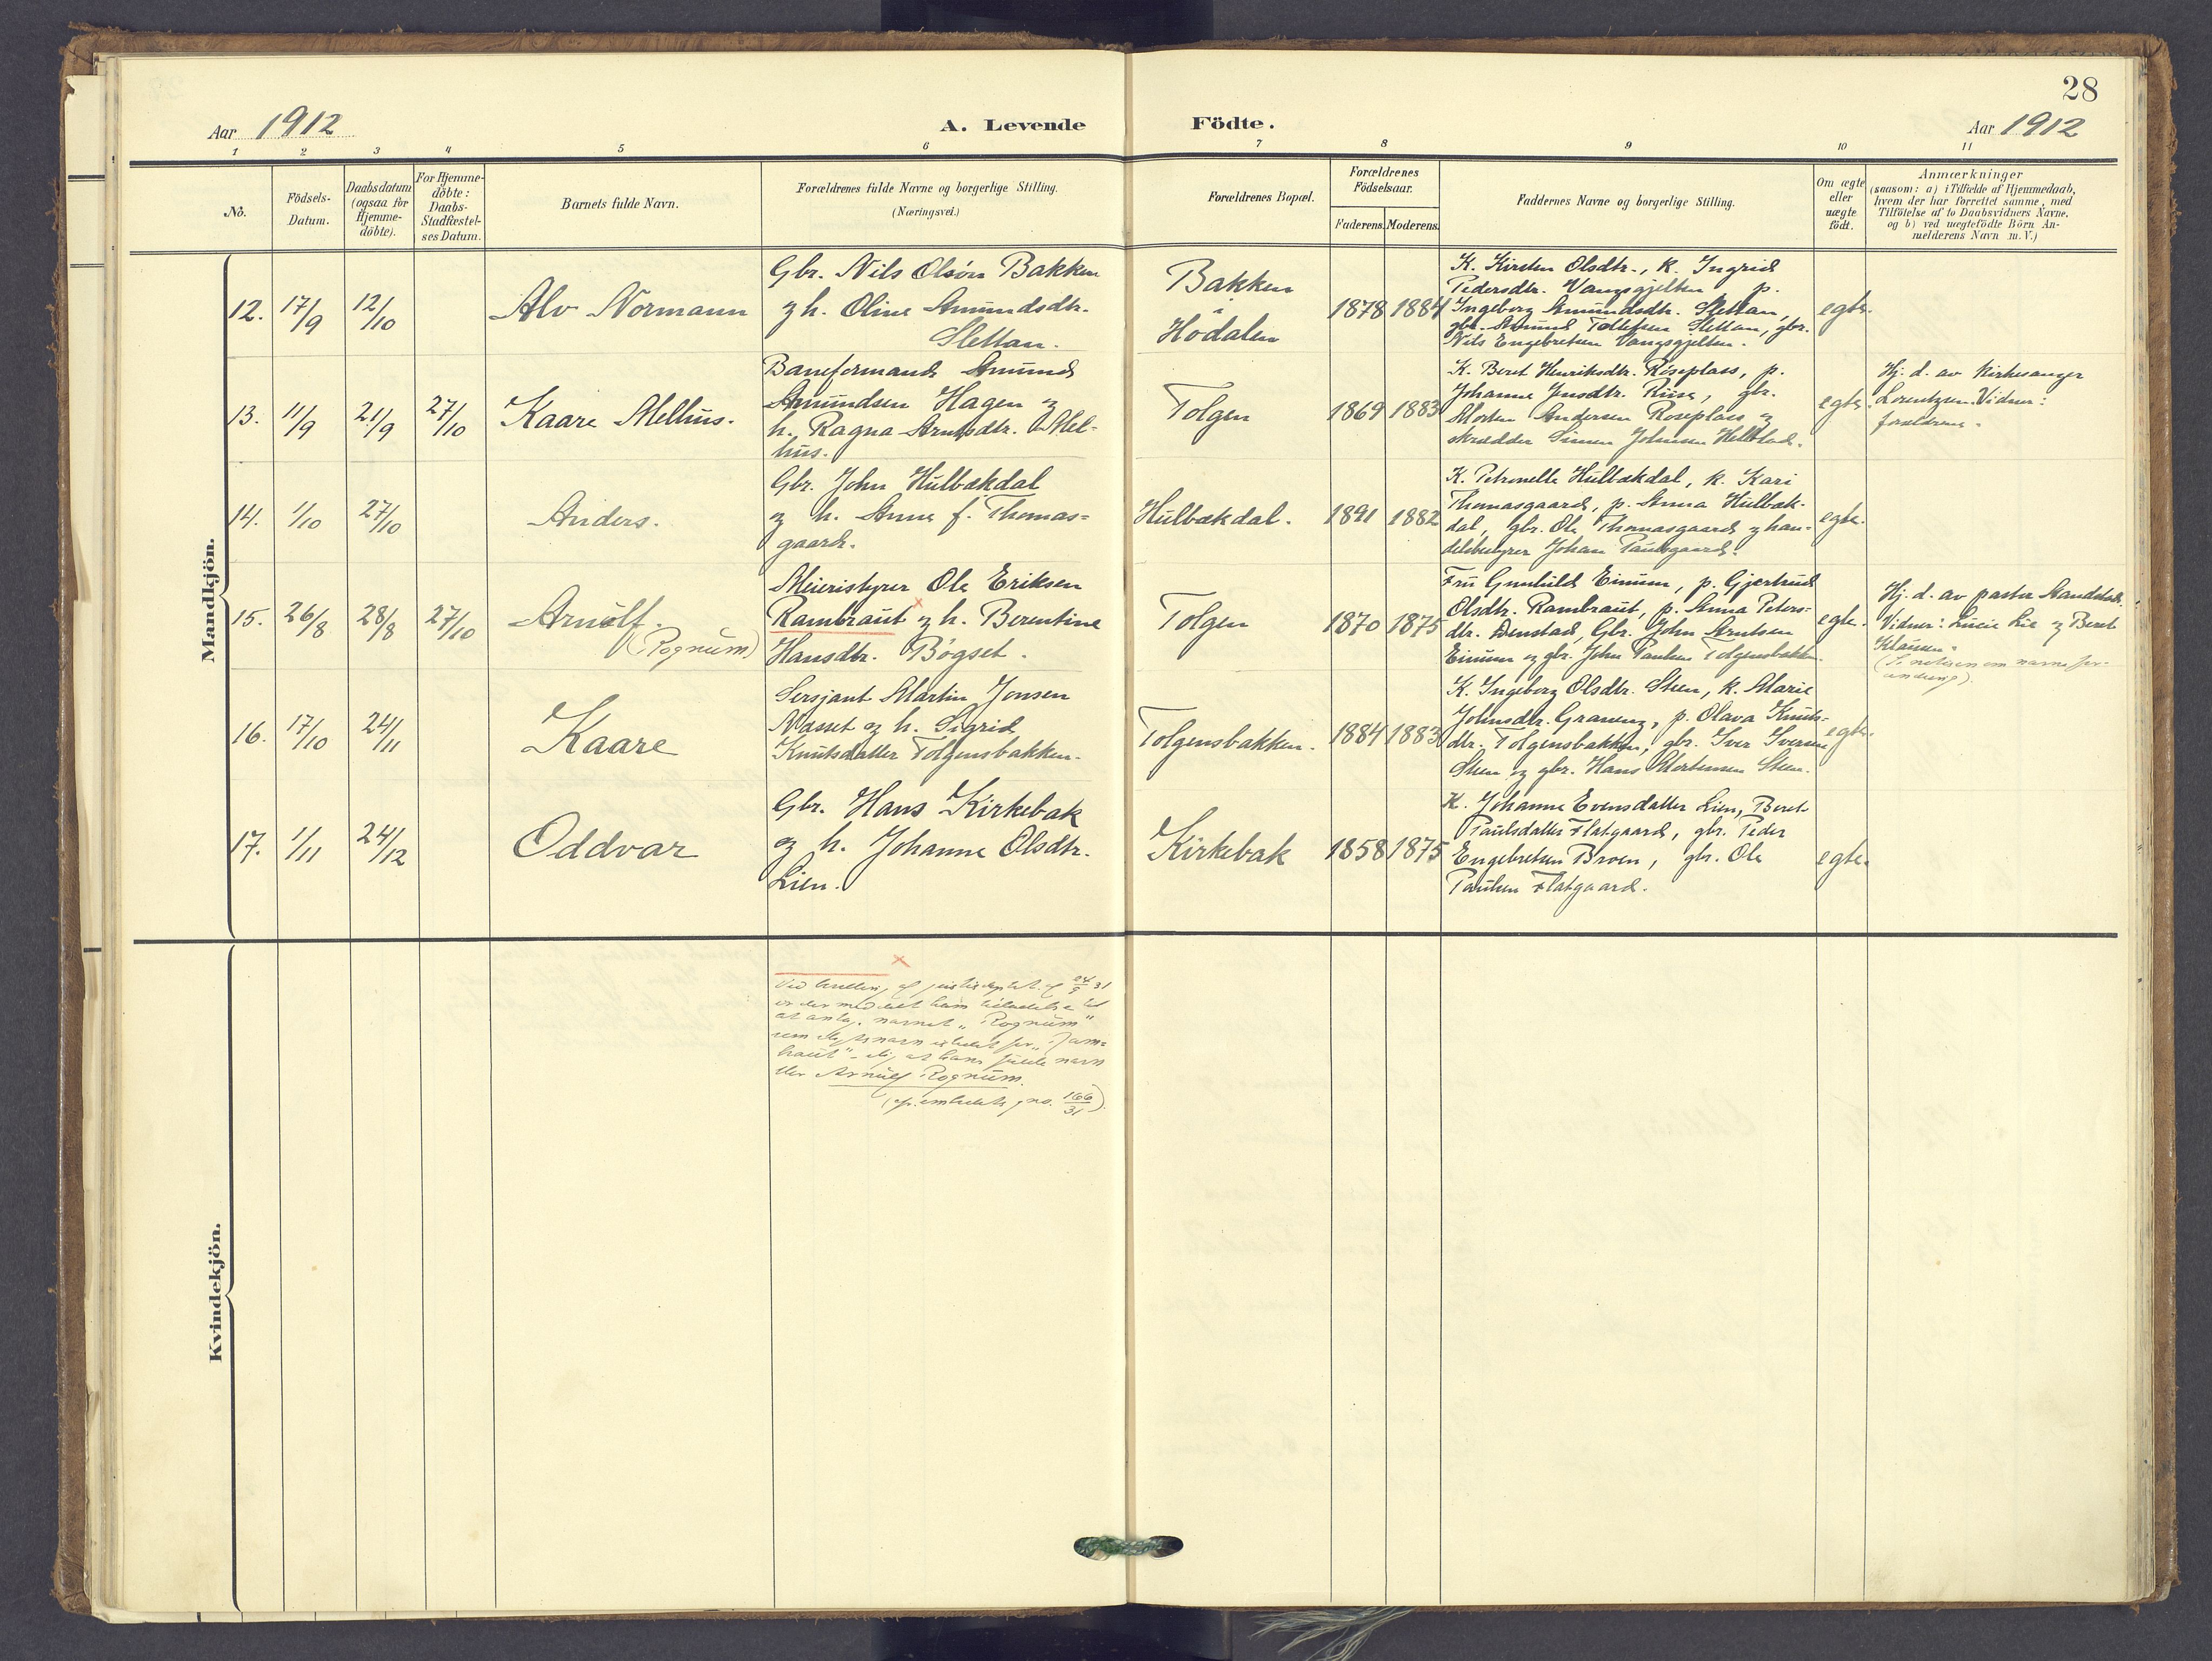 28
Aar 1912
A. Levende Födte.
Aar 1912
1 2 3 4 5 6 7 8 9 10 11
No.
Födsels-
Datum.
Daabsdatum
(ogsaa for
Hjemme-
döbte).
For Hjemme-
döbte:
Daabs-
Stadfæstel-
ses Datum.
Barnets fulde Navn.
Forældrenes fulde Navne og borgerlige Stilling.
(Næringsvei.)
Forældrenes Bopæl.
Forældrenes
Födselsaar.
Faderens. Moderens.
Faddernes Navne og borgerlige Stilling.
Om ægte
eller
uægte
födt.
Anmærkninger
(saasom: a) i Tilfælde af Hjemmedaab,
hvem der har forrettet samme, med
Tilföielse af to Daabsvidners Navne,
og b) ved uægtefödte Börn An-
melderens Navn m. V.)
Mandkjön.
12. 17/9 12/10
Alv Normann
Gbr. Nils Olsón Bakken
og h. Oline Amundsdtr.
Slettan.
Bakken
i
Hodalen
1878 1884
K. Kirsten Olsdtr., K. Ingrid
Pedersdtr. Vangsgjelten p.
Ingeborg Amundsdtr. Slettan,
gbr. Amund Tollefsen Slettan, gbr.
Nils Engebretsen Vangsgjelten.
egte.
13. 11/9 21/9 27/10
Kaare Melhus.
Baneformand Amund
Amundsen Hagen og
h. Ragna Arntsdtr. Mel-
hus.
Tolgen
1869 1883
K. Beret Henriksdtr. Roseplass, p.
Johanne Jensdtr. Ruse, gbr.
Morten Andersen Roseplass og
skrædder Simen Johnsen
egte.
Hj. d. av Kirkesanger
Lorentzen. Vidner:
forældrene.
14. 1/10 27/10
Anders.
Gbr. John Hulbækdal
og h. Anne f. Thomas=
gaard.
Hulbækdal.
1891 1882
K. Petronelle Hulbækdal, K. Kari
Thomasgaard, p. Anna Hulbæk-
dal, gbr. Ole Thomasgaard og han-
delsbestyrer Johan Paulsgaard.
egte.
15. 26/8 28/8 27/10
Arnulf.
(Rognum)
Meieristyrer Ole Eriksen
Rambraut og h. Berentine
Hansdtr. Bogset.
Tolgen
1870 1875
Fru Gunhild Eimun, p. Gjertrud
Olsdtr. Rambraut, p. Anna Peters-
dtr. Denstad, Gbr. John Arntsen
Eimun og gbr. John Paulsen Tolgensbakken.
egte.
Hj. d. av pastor
Vidner: Lucie Lie og Beret
Klausen.
(Se notisen om navnefor-
andring).
16. 17/10 24/11
Kaare
Sersjant Martin Jonsen
Næsset og h. Sigrid
Knutsdatter Tolgensbakken.
Tolgensbakken.
1884 1883
K. Ingeborg Olsdtr. Steen, K. Marie
Johnsdtr. Graneng, p. Olava Knuts-
dtr. Tolgensbakken, gbr. Iver Iversen
Steen og gbr. Hans Mortensen Steen.
egte.
17. 1/11 24/12
Oddvar
Gbr. Hans Kirkebak
og h. Johanne Olsdtr.
Lien.
Kirkebak
1858 1875
K. Johanne Evensdatter Lien, Beret
Paulsdatter Flatgaard, gbr. Peder
Engebretsen Broen, gbr. Ole
Paulsen Flatgaard.
egte.
Kvindekjön.
Ved bevilling af justisdeptet. af 24/9 31
er der meddelt ham tilladelse til
at antage navnet "Rognum"
som slektsnavn istedet for "Ram-
braut", slik at hans fulde navn
blir Arnulf Rognum.
(jfr. embedets jno. 166/31).